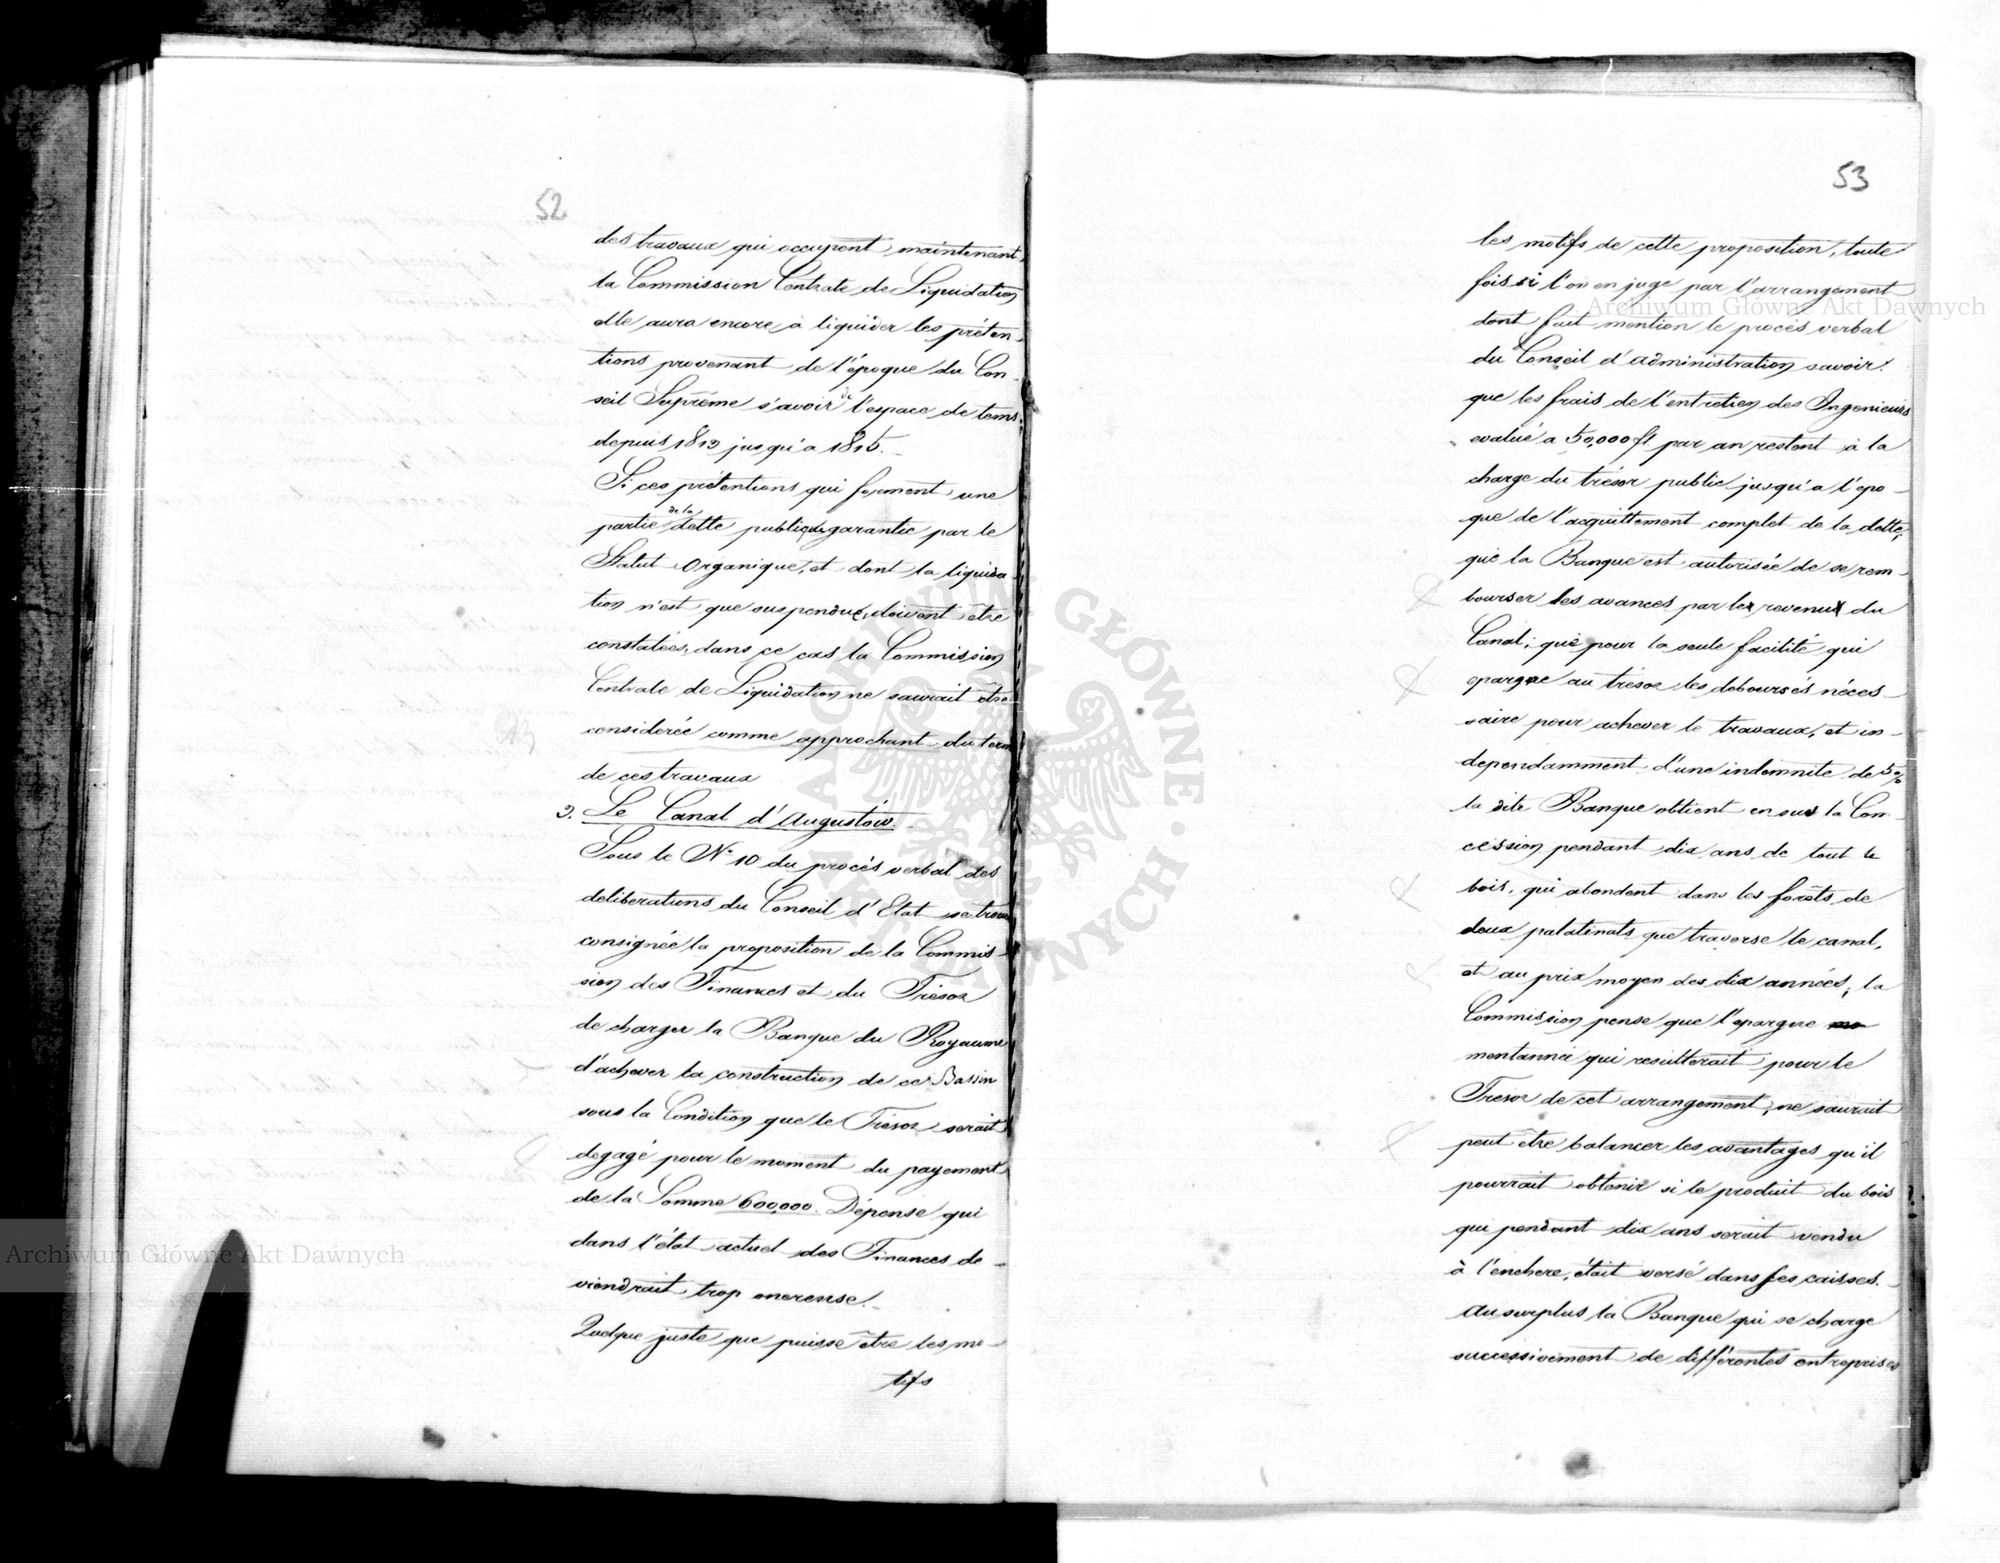 52
des travaux qui occupent maintenant
la Commission Centrale de Liquidation
elle aura encore à liquider les préten
tions provenant de l'époque du Con
seil Suprême s'avoir de l'espace de tems
depuis 1813 jusqu'a 1815.
Si ces prétentions qui forment une
partie de la dette publique garantie par le
Statut Organique, et dont la liquida
tion n'est que suspendue, doivent être
constatées, dans ce cas la Commission
Centrale de Liquidation ne saurait être
considerée comme approchant du term
de ces travaux
3. Le Canal d'Augustów.
Sous le № 10 du procés verbal des
deliberations du Conseil d'Etat se trouve
consignée la proposition de la Commis-
sion des Finances et du Trésor
de charger la Banque du Royaume
d'achever la construction de ce Bassin
sous la Condition que le Trésor serait
degagé pour le moment du payement
de la Somme 600,000. Dépense qui
dans l'état actuel des Finances de-
viendrait trop onereuse.
Quelque juste que puisse être les mo-
tifs
53
les motifs de cette proposition, toute
fois si l'on en juge par l'arrangement
dont fait mention le procés verbal
du Conseil d'administration savoir:
que les frais de l'entretien des Ingenieurs
evalué a 50,000 fl par an restent à la
charge du trésor public jusqu'a l'epo-
que de l'acquittement complet de la dette,
que la Banque est autorisée de se rem-
bourser les avances par les revenus du
Canal; que pour la seule facilité qui
epargne au trésor les deboursés néces-
saire pour achever le travaux, et in-
dependamment d'une indemnite de 5%
la dite Banque obtient en sus la Con-
cession pendant dix ans de tout le
bois, qui abondent dans les forêts de
deux palatinats que traverse le canal,
et au prix moyen des dix années; la
Commission pense que l'epargne mo
mentannée qui resulterait pour le
Tresor de cet arrangement, ne saurait
peut être balancer les avantages qu'il
pourrait obtenir si le produit du bois
qui pendant dix ans serait vendu
à l'enchere, était versé dans ses caisses.
Au surplus la Banque qui se charge
successivement de différentes entreprises
Archiwum Główne Akt Dawnych
Archiwum Główne Akt Dawnych
ARCHIWUM GŁÓWNE AKT DAWNYCH